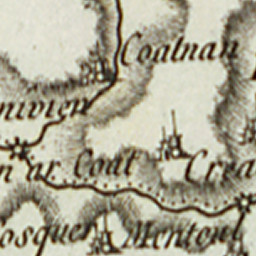 Coatnan
nivien
n ar Coat
Crea
osquer
Mentoul